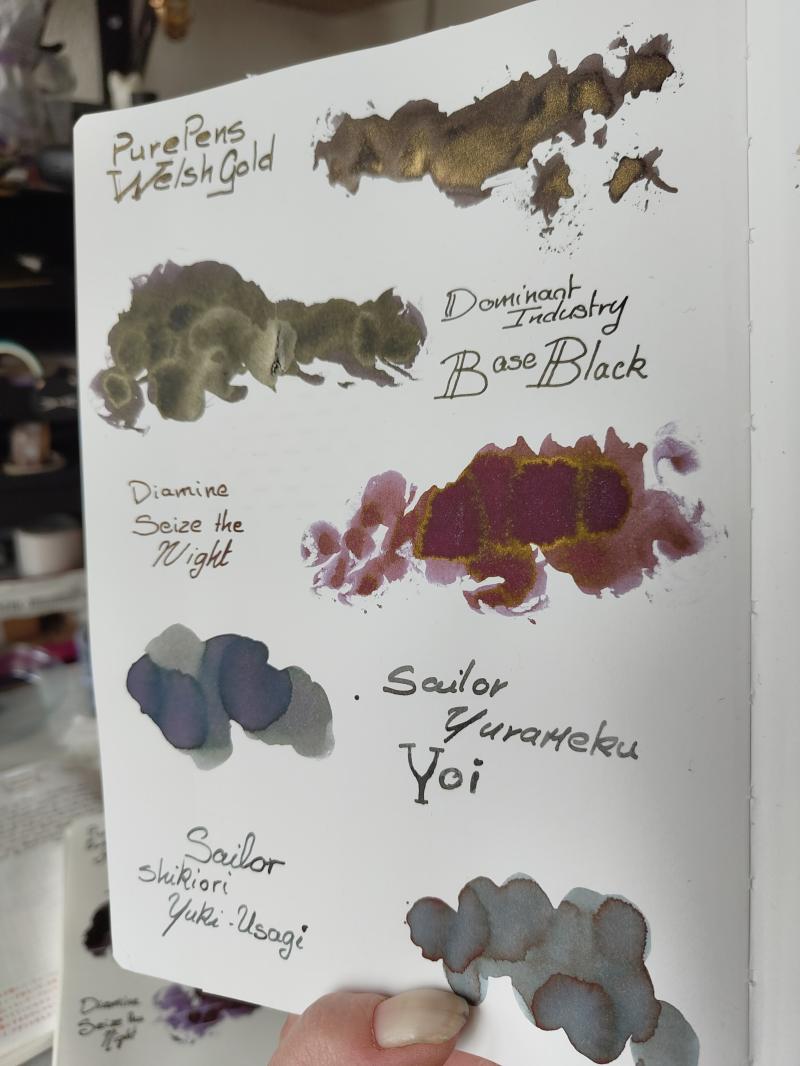 PurePens
Welsh Gold
Dominant
Industry
Base Black
Diamine
Seize the
Night
Sailor
Yurameku
Yoi
Sailor
Shikiori
Yuki-Usagi
Diamine
Seize the
Night